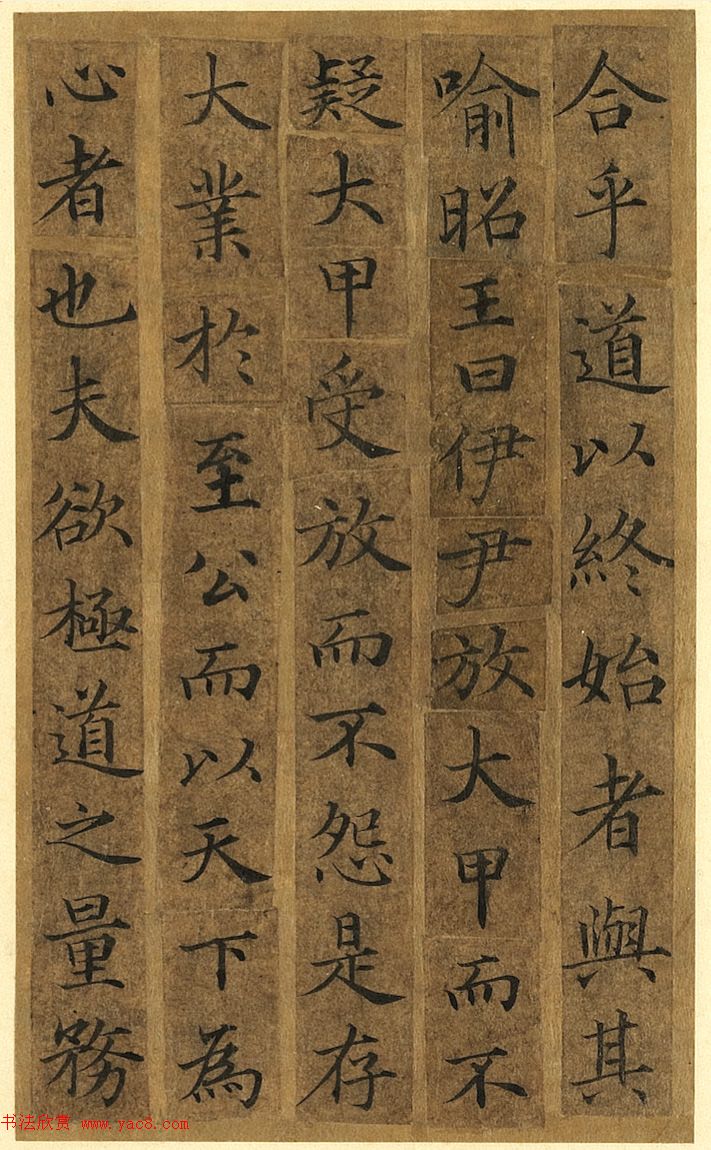 合乎道以終始者與其
喻昭王曰伊尹放大甲而不
疑大甲受放而不怨是存
大業於至公而以天下為
心者也夫欲極道之量務
书法欣赏 www.yac8.com